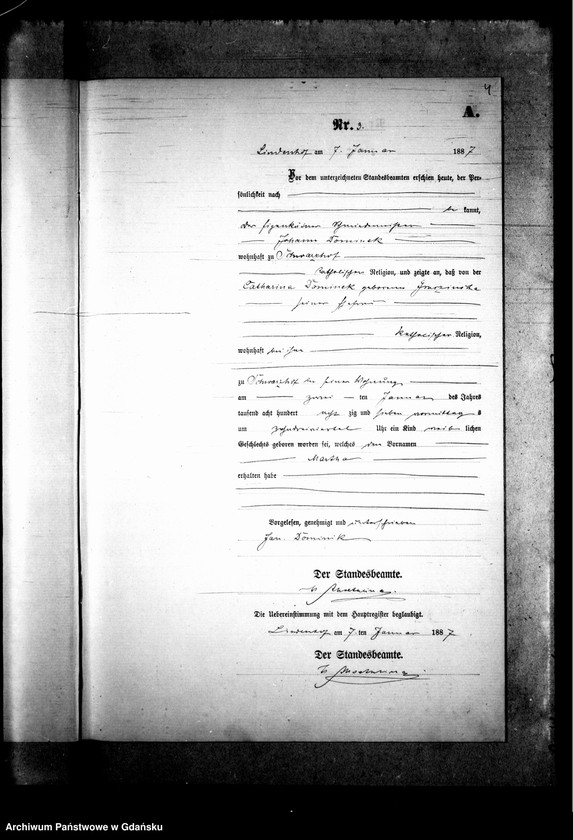 4
A.
Nr. 3.
Lindenhof am 7. Januar 1887
Vor dem unterzeichneten Standesbeamten erschien heute, der Per-
sönlichkeit nach
be kannt,
der Eigenkäthner
Johann Dominek
wohnhaft zu Schwarzhof
katholischer Religion, und zeigte an, daß von der
Catharina Dominek geborenen
seiner Ehefrau
katholischer Religion,
wohnhaft bei ihm
zu Schwarzhof in seiner Wohnung
am zwei ten Januar des Jahres
tausend acht hundert acht zig und sieben vormittag s
um Uhr ein Kind weib lichen
Geschlechts geboren worden sei, welches den Vornamen
Martha
erhalten habe
Vorgelesen, genehmigt und unterschrieben
Jan Dominik
Der Standesbeamte.
Die Uebereinstimmung mit dem Hauptregister beglaubigt.
Lindenhof am 7. ten Januar 1887
Der Standesbeamte.
Archiwum Państwowe w Gdańsku